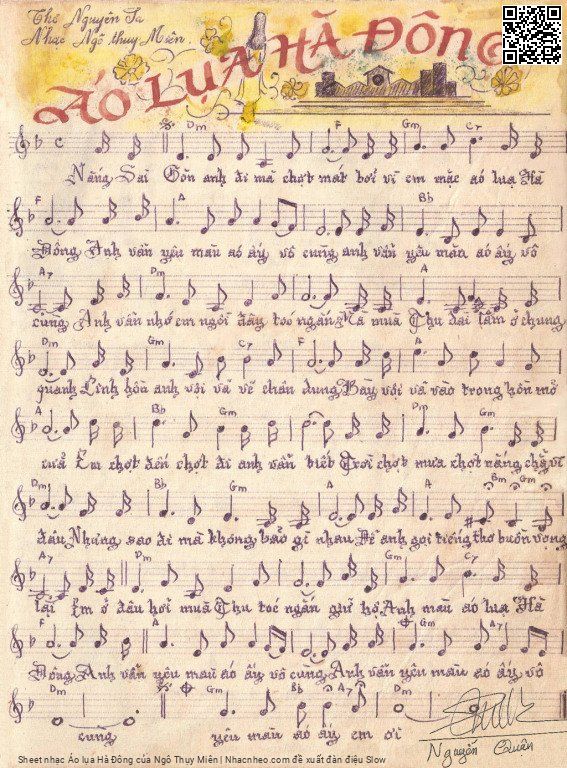 Thơ Nguyên Sa
Nhạc Ngô Thụy Miên
ÁO LỤA HÀ ĐÔNG
Dm F Gm C7
Nắng Sài Gòn anh đi mà chợt mát bởi vì em mặc áo lụa Hà
F A Bb
Đông Anh vẫn yêu màu áo ấy vô cùng anh vẫn yêu màu áo ấy vô
A7 Dm A
cùng Anh vẫn nhớ em ngồi đây tóc ngắn Mà mùa Thu dài lắm ở chung
Dm Gm C7 F A
quanh Linh hồn anh vội vã vẽ chân dung Bày vội vã vào trong hồn mở
A Bb Gm Dm Gm
cửa Em chợt đến chợt đi anh vẫn biết Trời chợt mưa chợt nắng chẳng vì
Dm Bb Gm A Bm Gm
đâu Nhưng sao đi mà không bảo gì nhau Để anh gọi tiếng thơ buồn vọng
A7 Dm Gm C7
lại Em ở đâu hỡi mùa Thu tóc ngắn giữ hộ Anh màu áo lụa Hà
F A Dm Gm A7
Đông Anh vẫn yêu màu áo ấy vô cùng Anh vẫn yêu màu áo ấy vô
Dm Gm Bb A7 Dm
cùng yêu màu áo ấy em ơi
Nguyễn Quân
Sheet nhạc Áo lụa Hà Đông của Ngô Thụy Miên | Nhacnheo.com đề xuất đàn điệu Slow